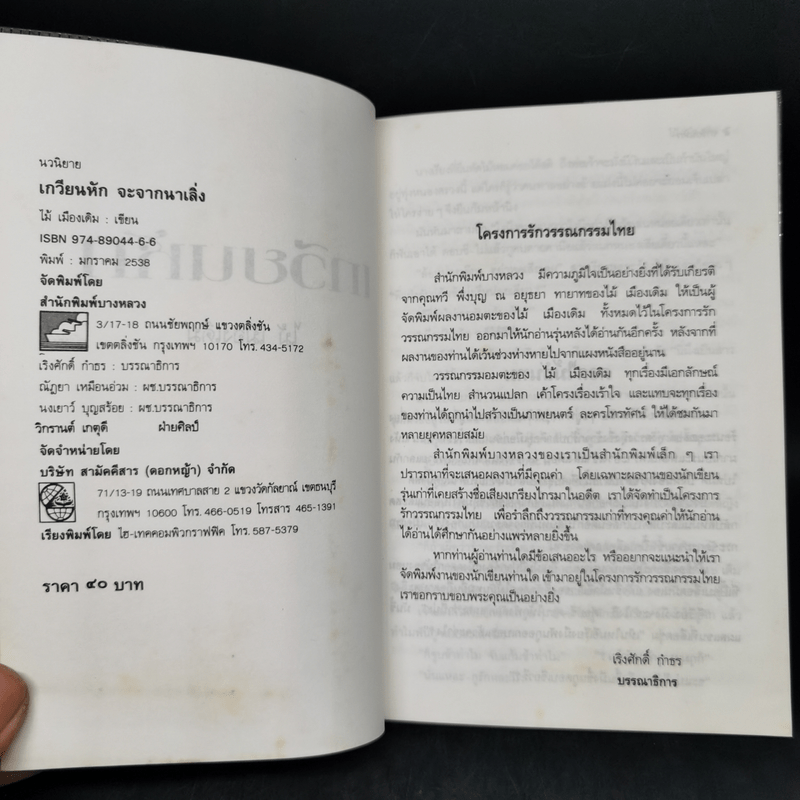 นวนิยาย
เกวียนหัก จะจากนาเลิ่ง
ไม้ เมืองเดิม : เขียน
ISBN 974-89044-6-6
พิมพ์ : มกราคม 2538
จัดพิมพ์โดย
สำนักพิมพ์บางหลวง
3/17-18 ถนนชัยพฤกษ์ แขวงตลิ่งชัน
เขตตลิ่งชัน กรุงเทพฯ 10170 โทร. 434-5172
เริงศักดิ์ กำธร : บรรณาธิการ
ณัฏยา เหมือนอ่วม : ผช.บรรณาธิการ
นงเยาว์ บุญสร้อย : ผช.บรรณาธิการ
วิกรานต์ เกตุดี ฝ่ายศิลป์
จัดจำหน่ายโดย
บริษัท สามัคคีสาร (ดอกหญ้า) จำกัด
71/13-19 ถนนเทศบาลสาย 2 แขวงวัดกัลยาณ์ เขตธนบุรี
กรุงเทพฯ 10600 โทร. 466-0519 โทรสาร 465-1391
เรียงพิมพ์โดย ไฮ-เทคคอมพิวกราฟฟิค โทร. 587-5379
ราคา ๔๐ บาท
โครงการรักวรรณกรรมไทย
สำนักพิมพ์บางหลวง มีความภูมิใจเป็นอย่างยิ่งที่ได้รับเกียรติ
จากคุณทวี พึ่งบุญ ณ อยุธยา ทายาทของไม้ เมืองเดิม ให้เป็นผู้
จัดพิมพ์ผลงานอมตะของ ไม้ เมืองเดิม ทั้งหมดไว้ในโครงการรัก
วรรณกรรมไทย ออกมาให้นักอ่านรุ่นหลังได้อ่านกันอีกครั้ง หลังจากที่
ผลงานของท่านได้เว้นช่วงห่างหายไปจากแผงหนังสืออยู่นาน
วรรณกรรมอมตะของ ไม้ เมืองเดิม ทุกเรื่องมีเอกลักษณ์
ความเป็นไทย สำนวนแปลก เค้าโครงเรื่องเร้าใจ และแทบจะทุกเรื่อง
ของท่านได้ถูกนำไปสร้างเป็นภาพยนตร์ ละครโทรทัศน์ ให้ได้ชมกันมา
หลายยุคหลายสมัย
สำนักพิมพ์บางหลวงของเราเป็นสำนักพิมพ์เล็ก ๆ เรา
ปรารถนาที่จะเสนอผลงานที่มีคุณค่า โดยเฉพาะผลงานของนักเขียน
รุ่นเก่าที่เคยสร้างชื่อเสียงเกรียงไกรมาในอดีต เราได้จัดทำเป็นโครงการ
รักวรรณกรรมไทย เพื่อรำลึกถึงวรรณกรรมเก่าที่ทรงคุณค่าให้นักอ่าน
ได้อ่านได้ศึกษากันอย่างแพร่หลายยิ่งขึ้น
หากท่านผู้อ่านท่านใดมีข้อเสนออะไร หรืออยากจะแนะนำให้เรา
จัดพิมพ์งานของนักเขียนท่านใด เข้ามาอยู่ในโครงการรักวรรณกรรมไทย
เราขอกราบขอบพระคุณเป็นอย่างยิ่ง
เริงศักดิ์ กำธร
บรรณาธิการ